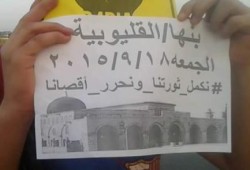 بنها/القليوبية
الجمعه ٢٠١٥/٩/١٨
#نكمل_ثورتنا_ونحرر_أقصانا